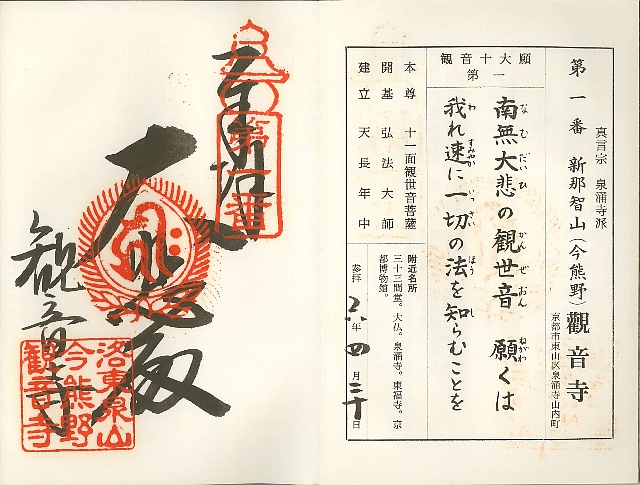 真言宗 泉涌寺派
第一番 新那智山(今熊野)觀音寺
京都市東山区泉涌寺山内町
観音十大願
第一
南無大悲の観世音 願くは
なむだいひ かんぜおん ねがわ
我れ速に一切の法を知らむことを
わ すみやか いっさい ほう し
本尊 十一面観世音菩薩
開基 弘法大師
建立 天長年中
附近名所
三十三間堂。大仏。泉涌寺。東福寺。京
都博物館。
参拝 26年 四月 三十日
奉拝
第一番
大悲殿
観音寺
洛東泉山
今熊野
観音寺